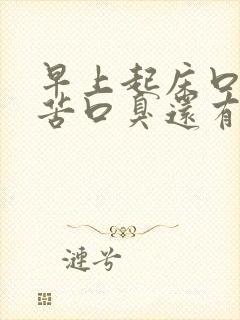 早上起床口
苦口臭還有
漣兮